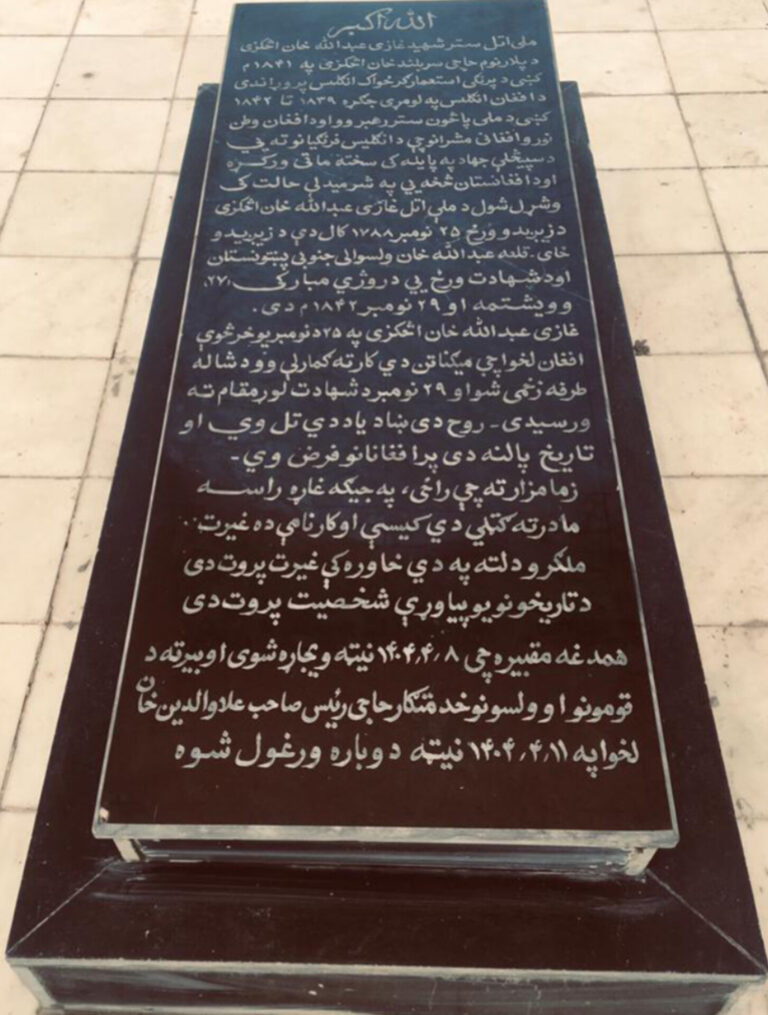 الله اکبر
ملی اتل ستر شهید غازی عبدالله خان اڅکزی
د پلار نوم حاجی سربلند خان اڅکزی په ۱۸۴۱ م
کښې د پرنګی استعمارګر ځواک انګلیس پر وړاندی
د افغان انګلیس په لومړی جګړه ۱۸۳۹ تا ۱۸۴۲
کښی د ملی پاڅون ستر رهبر وو او د افغان وطن
نورو افغانی مشرانو چې د انګلیس فرنګیانو ته یې
د سپیڅلې جهاد په پایله کی سخته ماتی ورکړه
او د افغانستان څخه یې په شرمیدلې حالت کی
وشړل شول د ملی اتل غازی عبدالله خان اڅکزی
د زیږیدو ورځ ۲۵ نومبر ۱۷۸۸ کال دې د زیږیدو
ځای - قلعه عبدالله خان ولسوالی جنوبی پښتونستان
او د شهادت ورځ یې د روژې مبارکی ۲۷،
وویشتمه او ۲۹ نومبر ۱۸۴۲ م دی .
غازی عبدالله خان اڅکزی په ۲۵ د نومبر یو خرڅوې
افغان لخوا چې میګناتن دې کار ته ګمارلې وو د شا له
طرفه زخمی شو او ۲۹ نومبر د شهادت لوړ مقام ته
ورسیدی - روح دی ښاد یاد دې تل وي او
تاریخ پالنه دی پر افغانانو فرض وي -
زما مزار ته چې راځی، په جیګه غاړه راسه
ما درته ګټلې دې کیسې او کارنامې ده غیرت
ملګرو دلته په دې خاوره کې غیرت پروت دی
د تاریخونو یو پیاوړې شخصیت پروت دی
همدغه مقبیره چې ۱۴۰۴/۴/۸ نیټه ویجاړه شوی او بیرته د
قومونو او ولسونو خدمتګار حاجی رئیس صاحب علاوالدین خان
لخوا په ۱۴۰۴/۴/۱۱ نیټه دوباره ورغول شوه